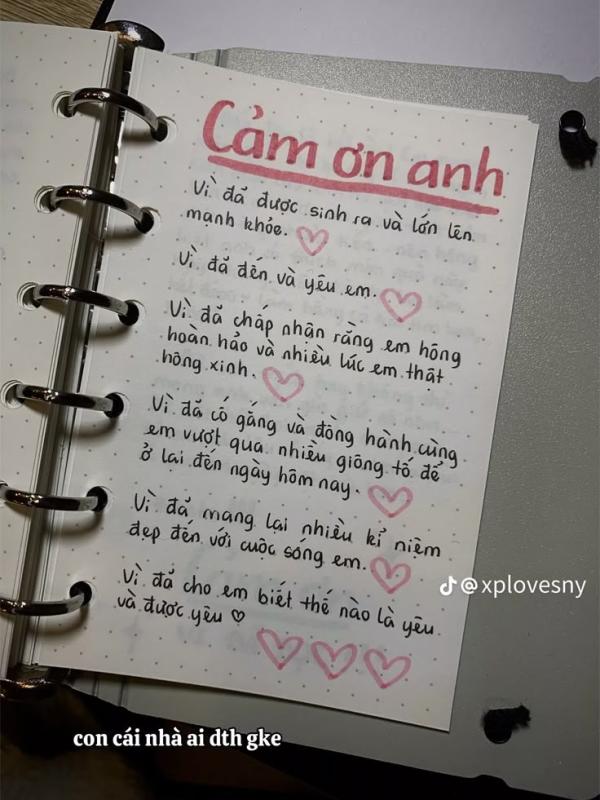 Cảm ơn anh
Vì đã được sinh ra và lớn lên
mạnh khỏe.
Vì đã đến và yêu em.
Vì đã chấp nhận rằng em hông
hoàn hảo và nhiều lúc em thật
hông xinh.
Vì đã cố gắng và đồng hành cùng
em vượt qua nhiều giông tố để
ở lại đến ngày hôm nay.
Vì đã mang lại nhiều kỉ niệm
đẹp đến với cuộc sống em.
Vì đã cho em biết thế nào là yêu
và được yêu ♡
@xplovesny
con cái nhà ai dth gke